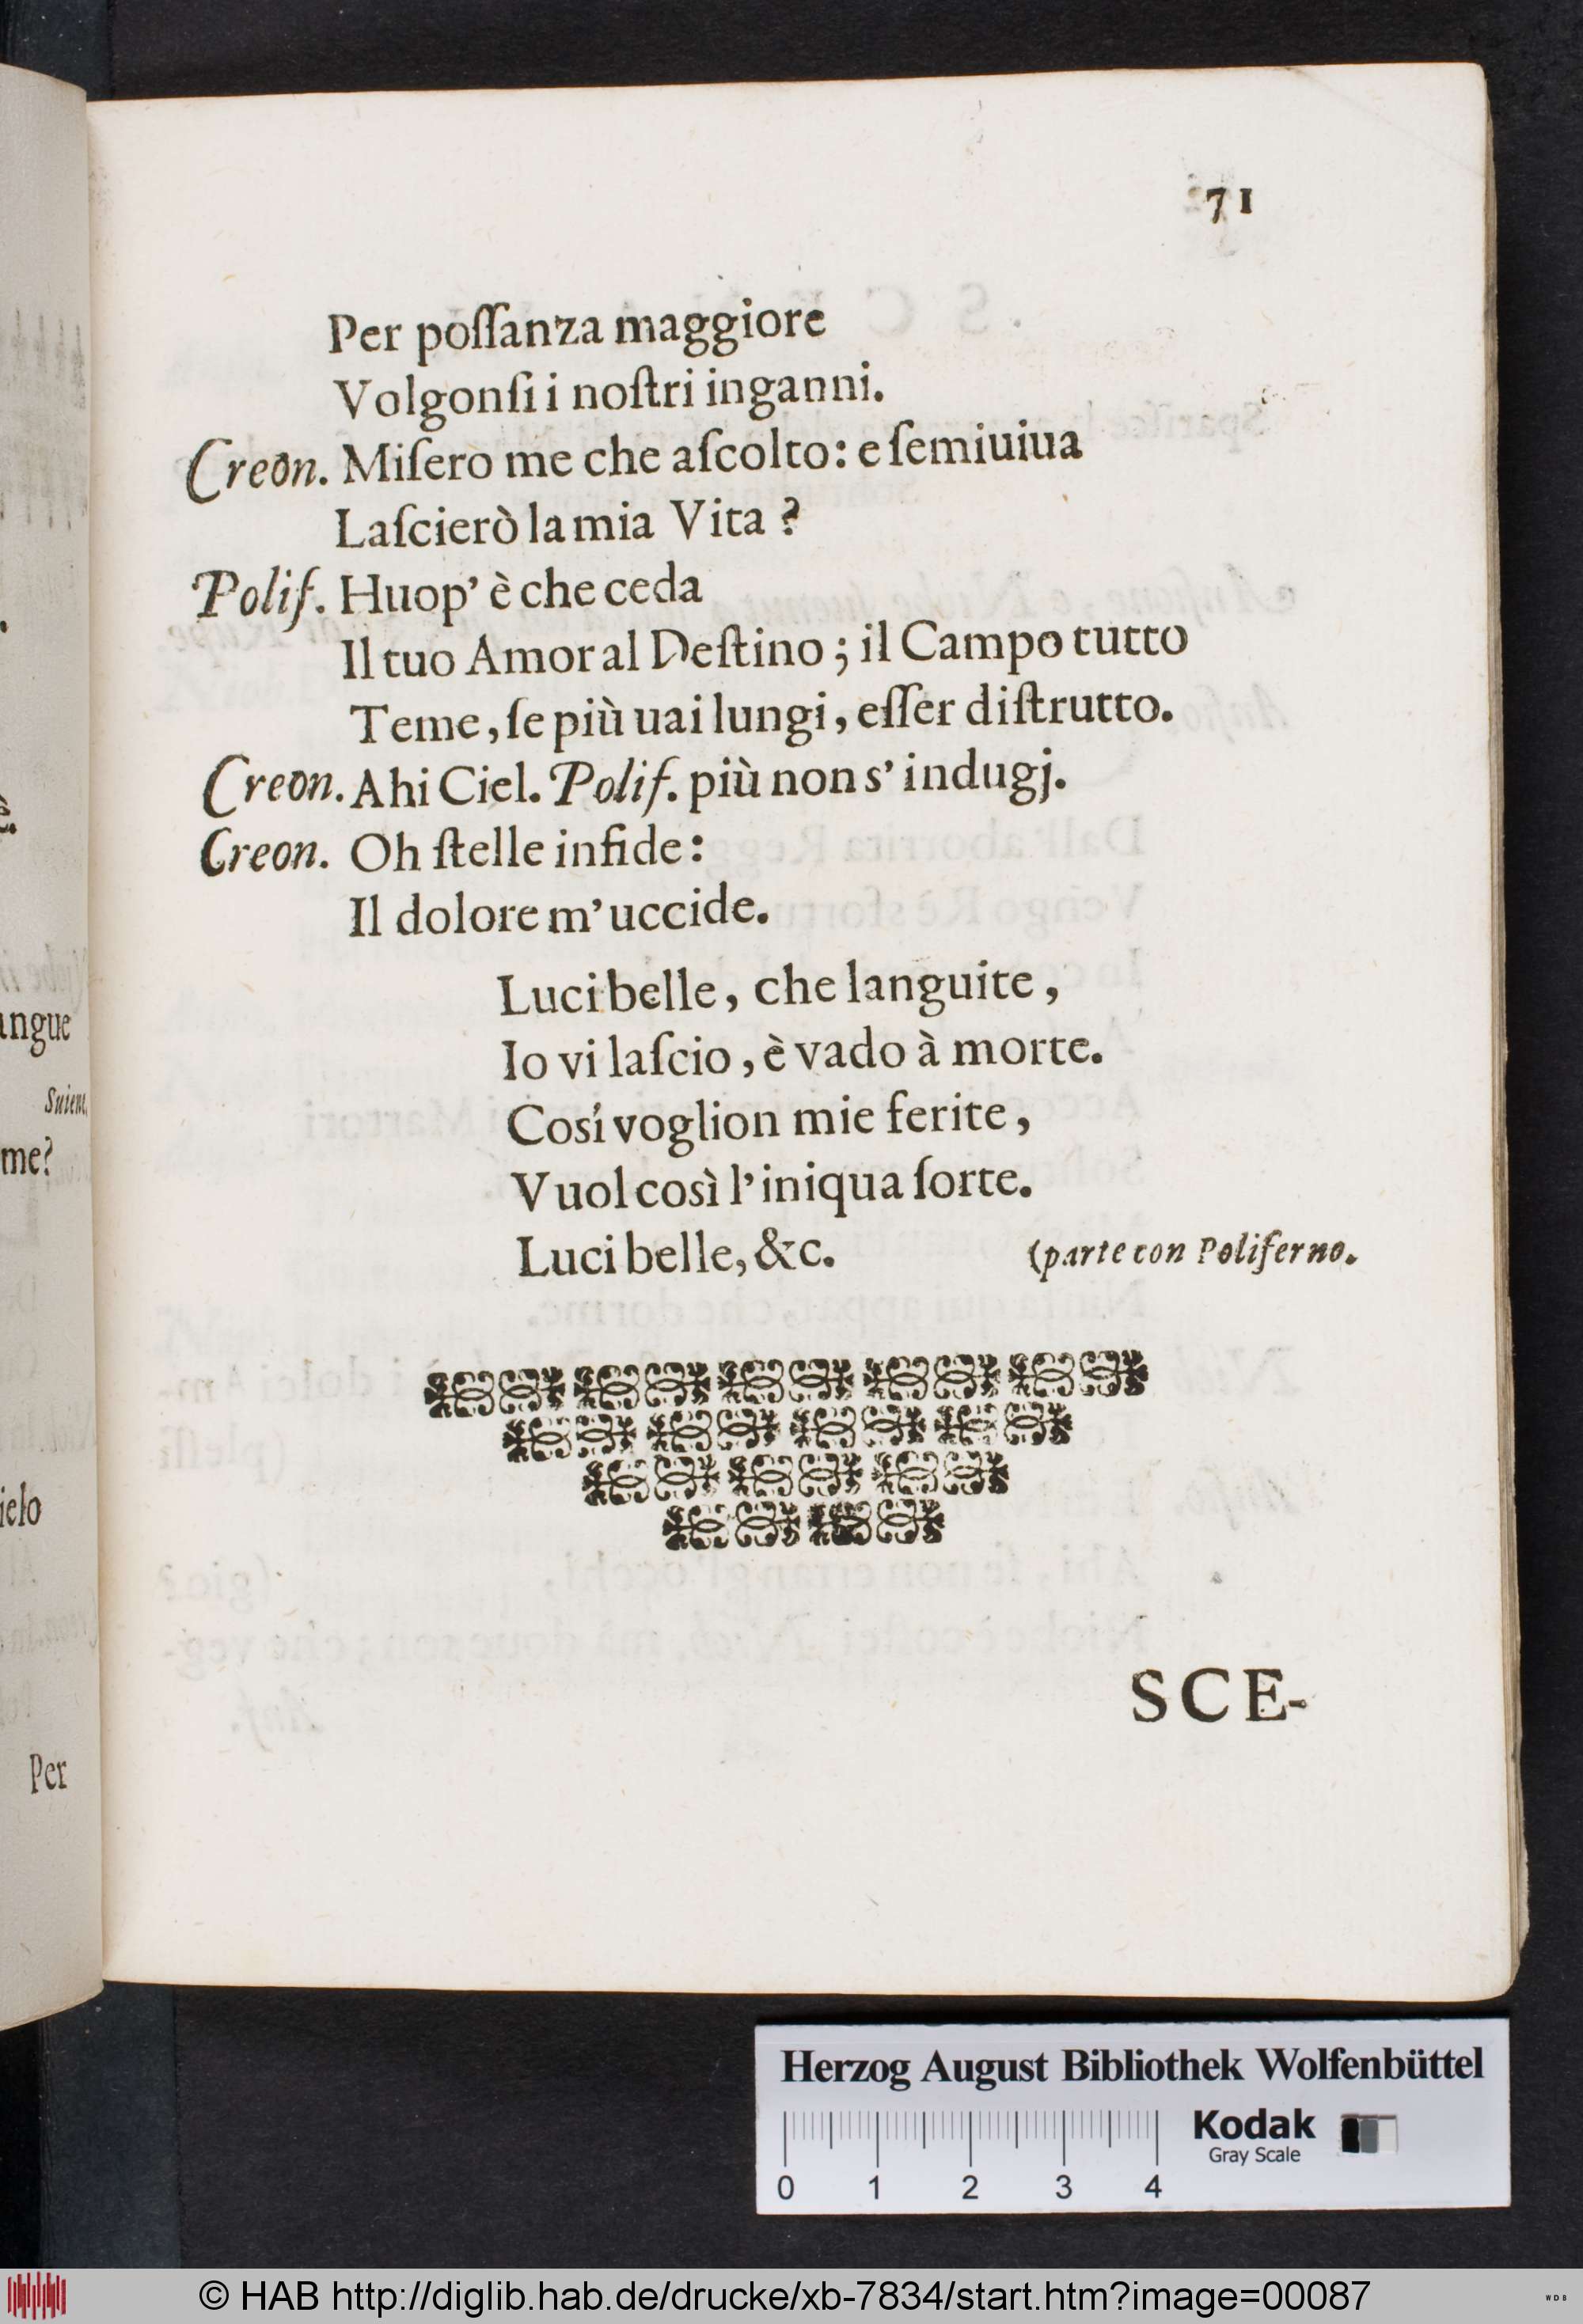 71
Per poſſanza maggiore
Volgonſi i noſtri inganni.
Creon. Miſero me che aſcolto: e ſemiuiua
Laſcierò la mia Vita ?
Polif. Huop' è che ceda
Il tuo Amor al Deſtino ; il Campo tutto
Teme, ſe più uai lungi, eſſer diſtrutto.
Creon. Ahi Ciel. Polif. più non s' indugj.
Creon. Oh ſtelle infide:
Il dolore m' uccide.
Luci belle, che languite,
Io vi laſcio, è vado à morte.
Cosí voglion mie ferite,
Vuol così l' iniqua ſorte.
Luci belle, &c. (parte con Poliferno.
SCE-
angue
Suiene.
me?
ielo
Per
Herzog August Bibliothek Wolfenbüttel
Kodak
Gray Scale
0 1 2 3 4
© HAB http://diglib.hab.de/drucke/xb-7834/start.htm?image=00087
WDB